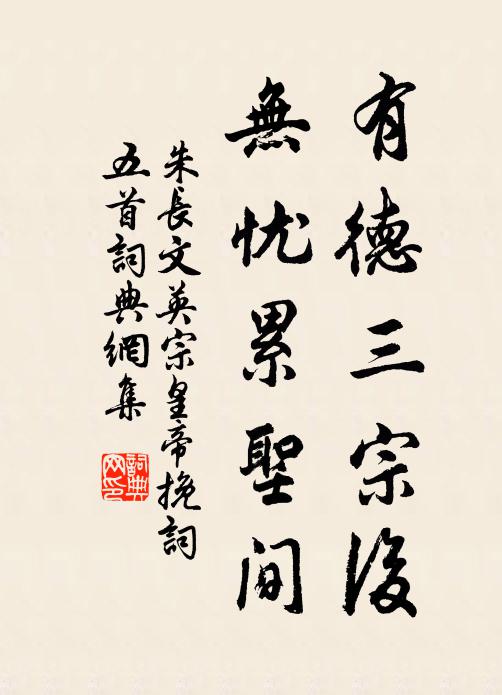 有德三宗後
無忧累聖间
朱長文英宗皇帝挽詞
五首詞典網集
詞典
网印